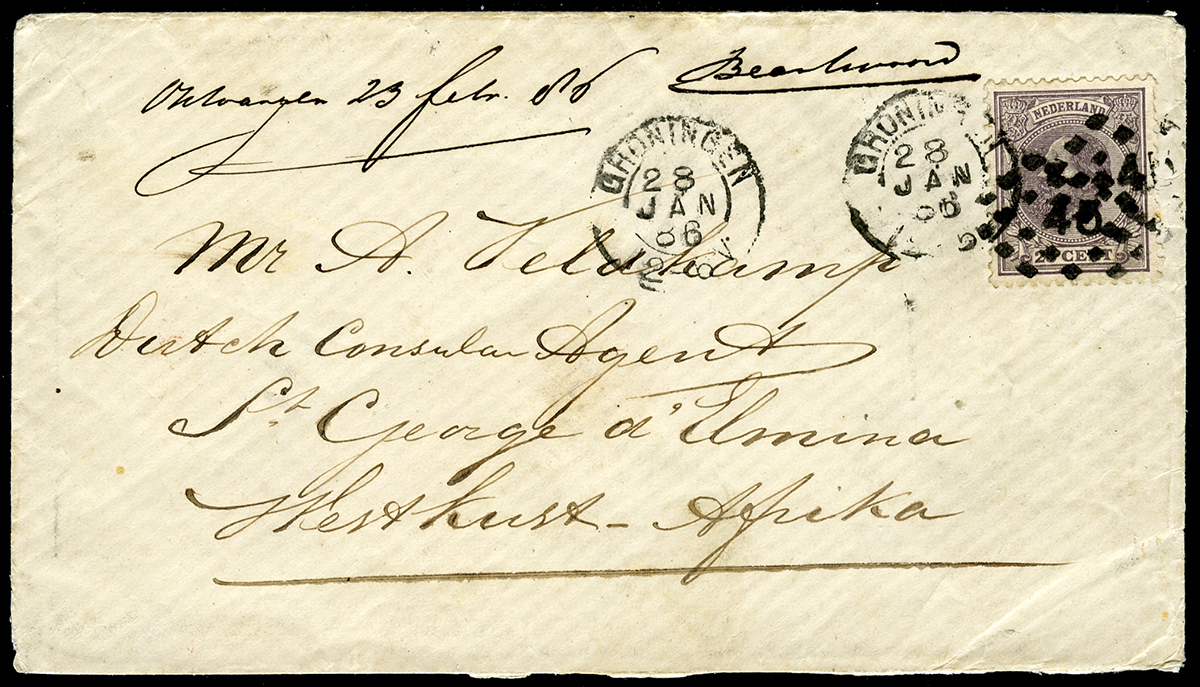 Ontvangen 23 febr. 86 Beantwoord
GRONINGEN
28
JAN
86
GRONINGEN
28
JAN
86
NEDERLAND
45
CENT
Mr A. Veldkamp
Dutch Consular Agent
St. George d'Elmina
Westkust - Afrika